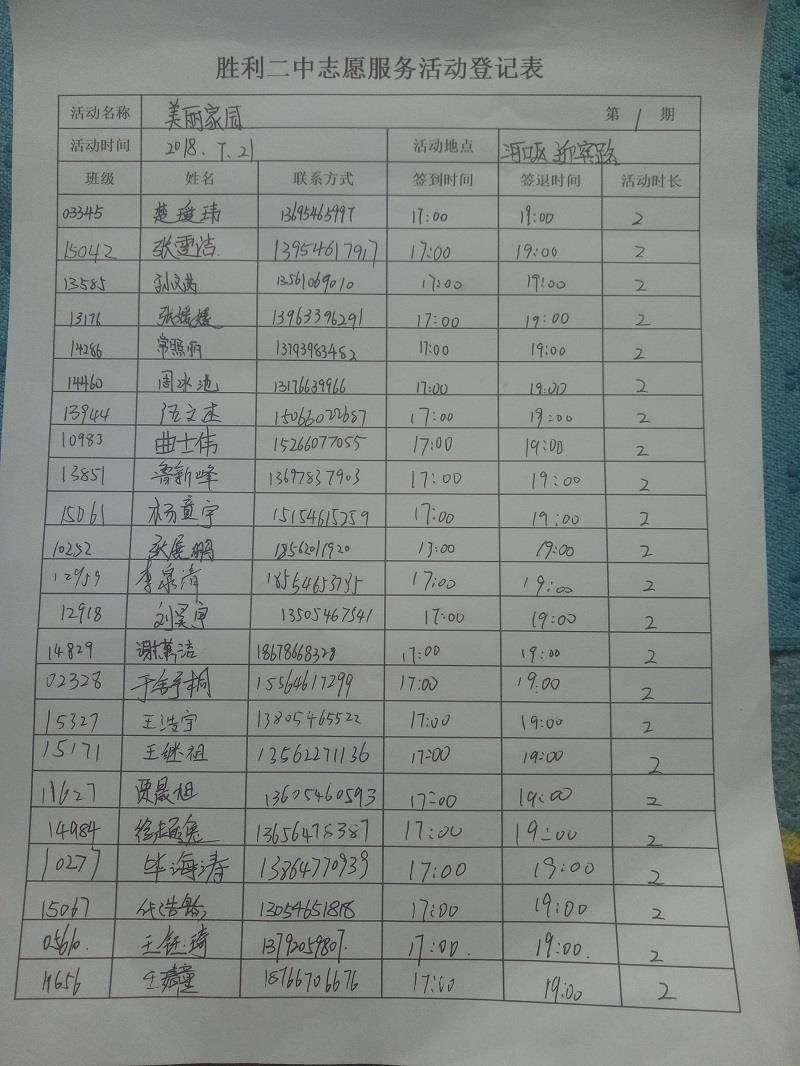 胜利二中志愿服务活动登记表
活动名称 美丽家园 第 1 期
活动时间 2018.7.21 活动地点 迎宾路
班级 姓名 联系方式 签到时间 签退时间 活动时长
03345 楚瑷玮 13695465997 17:00 19:00 2
15042 张雪洁 13954617917 17:00 19:00 2
13585 孙文茜 13561069010 17:00 19:00 2
13176 张媛媛 13963396291 17:00 19:00 2
14286 常照丽 13793983482 17:00 19:00 2
14460 周冰池 13176639966 17:00 19:00 2
13944 伍文杰 15063022687 17:00 19:00 2
10983 曲士伟 15266077055 17:00 19:00 2
13851 鲁新峰 13697837903 17:00 19:00 2
15061 杨童宇 15154615259 17:00 19:00 2
10252 张展鹏 18562011920 17:00 19:00 2
12959 李泉清 18554653785 17:00 19:00 2
12918 刘昊宇 13505467541 17:00 19:00 2
14829 谢菁洁 18678668328 17:00 19:00 2
02328 于舒桐 15564617299 17:00 19:00 2
15327 王浩宇 13805465522 17:00 19:00 2
15171 王继祖 13562271136 17:00 19:00 2
贾晟祖 13605460593 17:00 19:00 2
14984 13656478387 17:00 19:00 2
10277 毕海涛 13864770939 17:00 19:00 2
15067 代浩龄 13054651818 17:00 19:00 2
05610. 王钰琦 1379205980 17:00. 19:00. 2
14656 18766706676 17:00 19:00 2